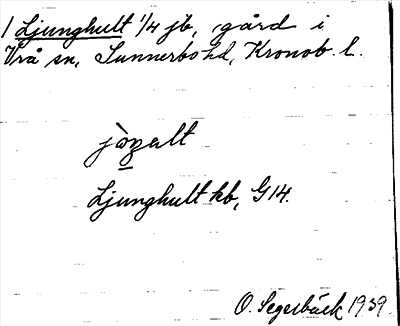 1 Ljunghult 1/4 jb, gård i
Vrå sn, Sunnerbo hd, Kronob. l.
Ljunghult kb, G14.
O. Segerbäck 1939.